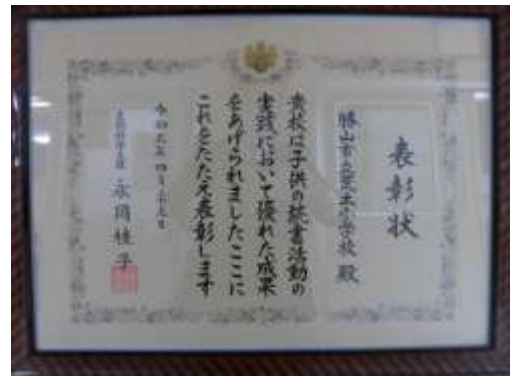 表彰状
勝山市立荒土小学校 殿
貴校は子供の読書活動の
実践において優れた成果
をあげられましたここに
これをたたえ表彰します
令和五年四月二十三日
文部科学大臣 永岡桂子